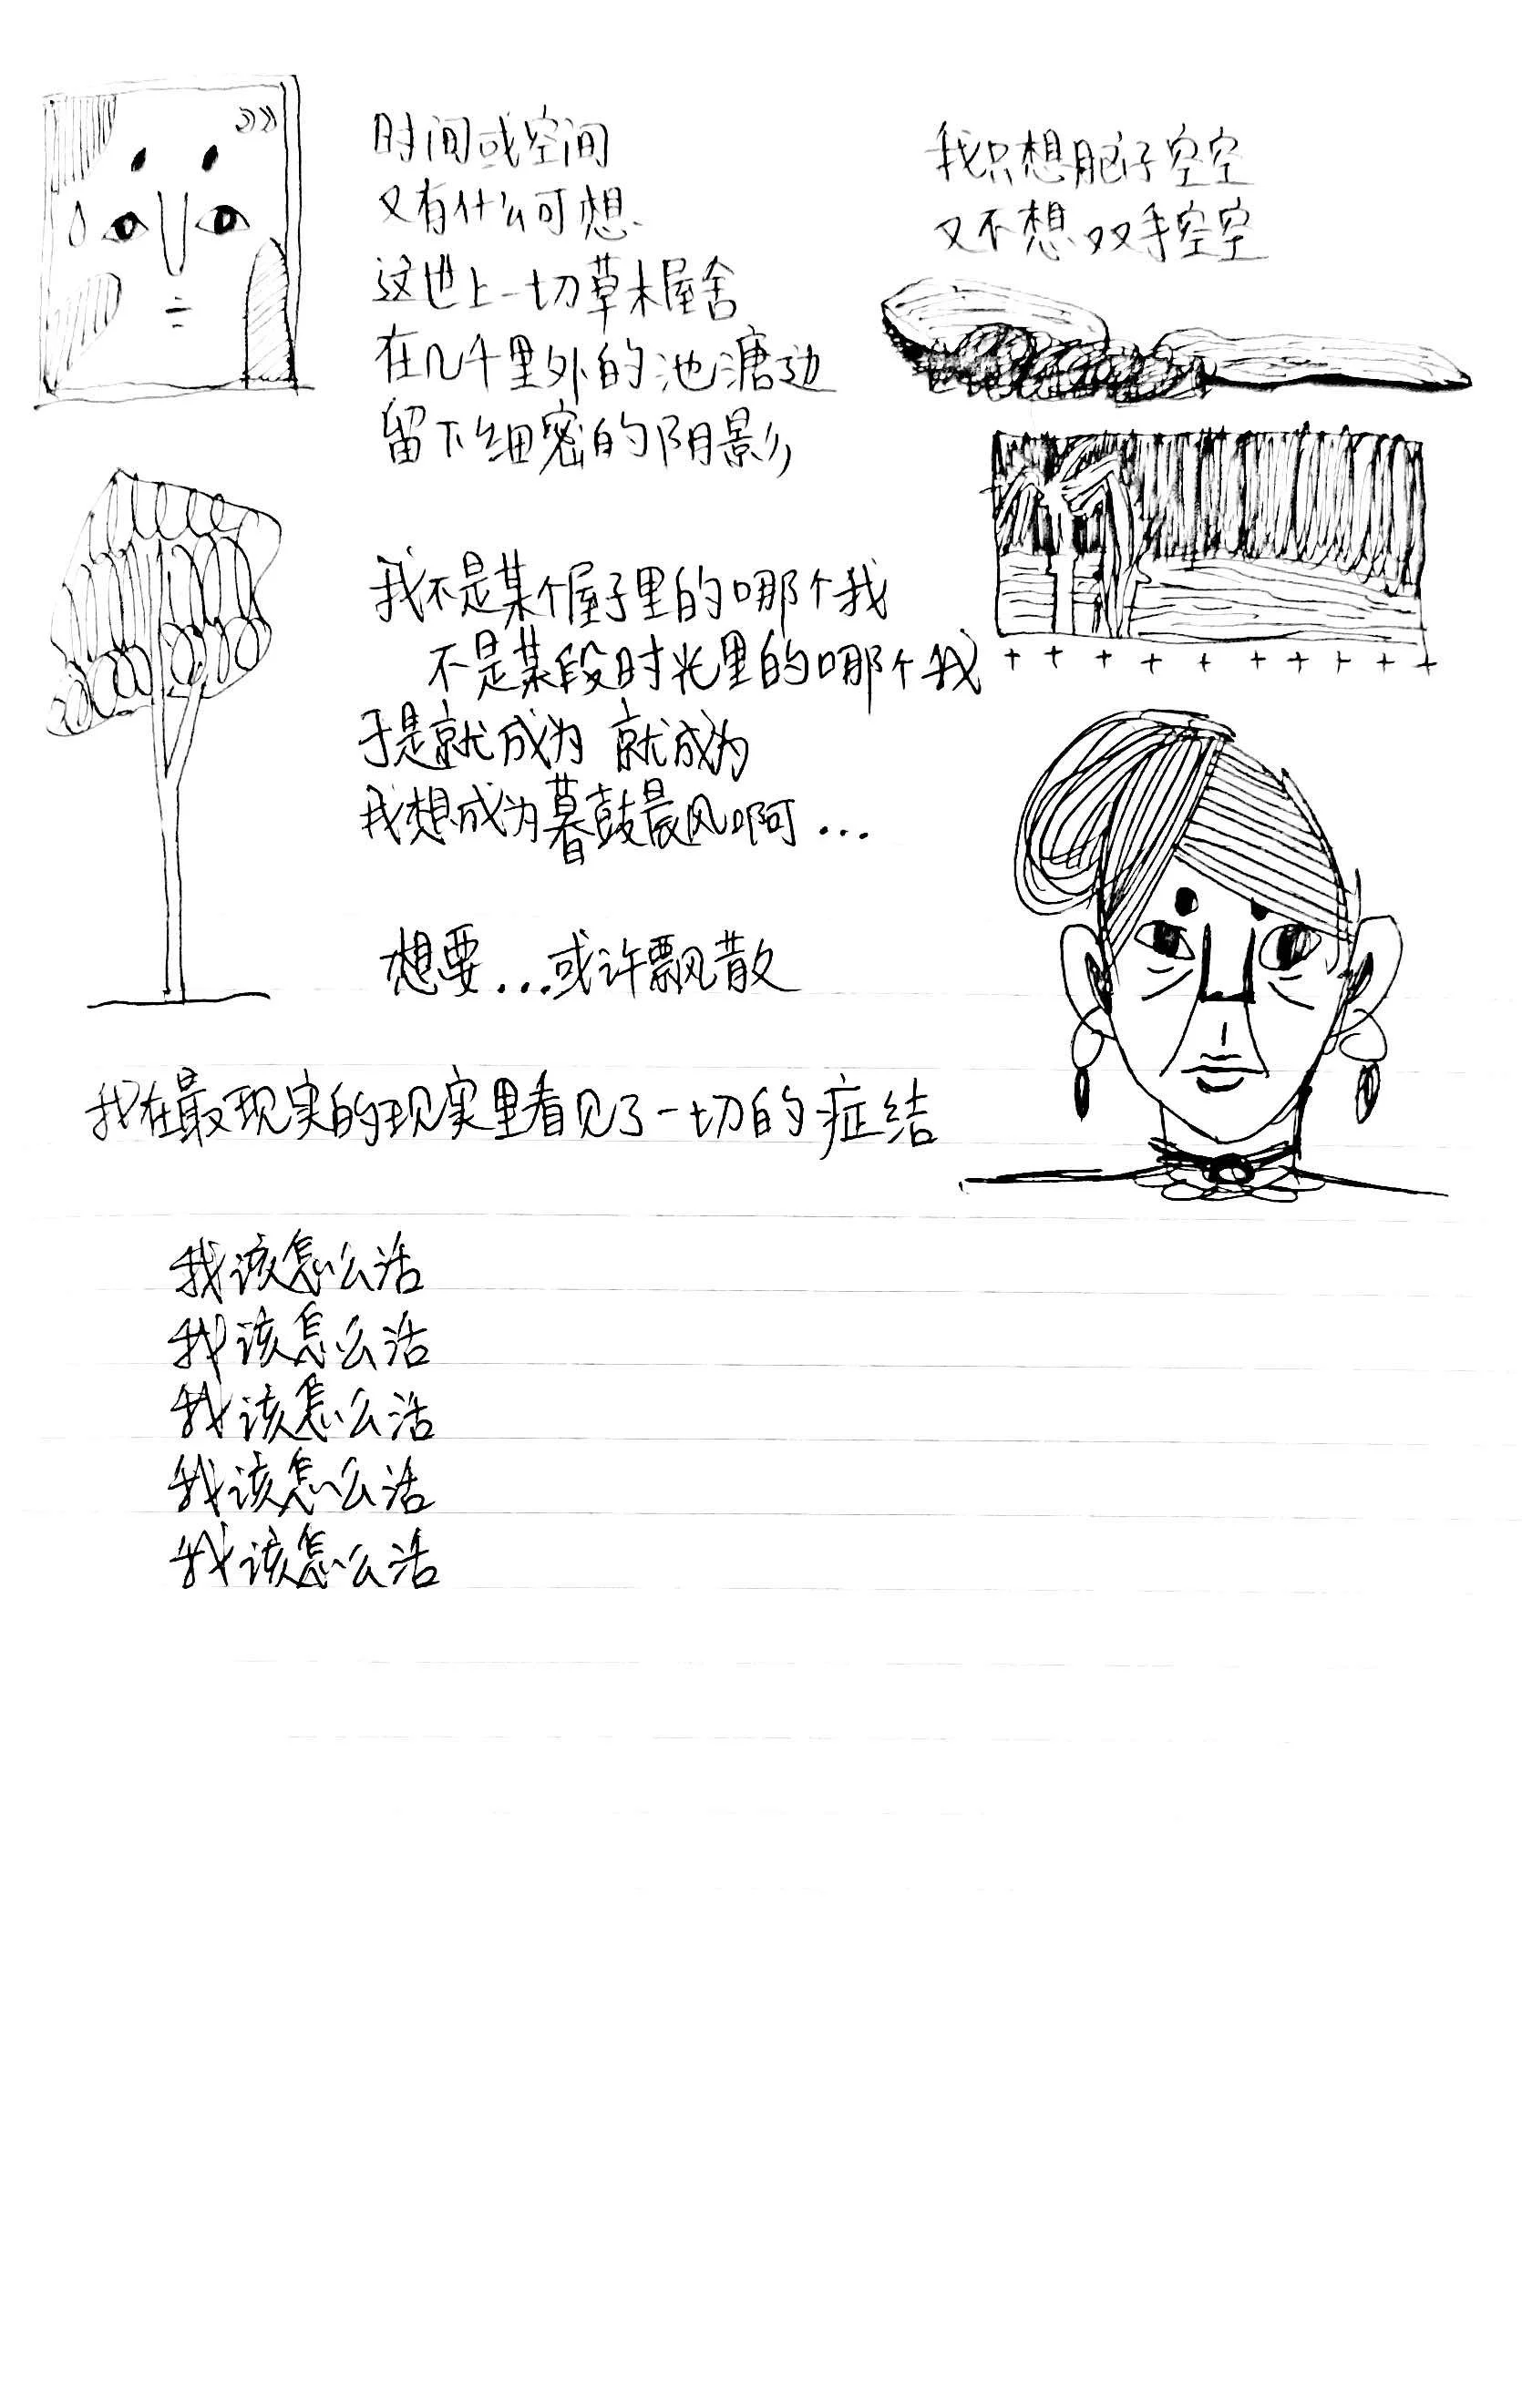 时间或空间
又有什么可想
这世上一切草木屋舍
在几千里外的池溏边
留下细密的阴影
我只想脑子空空
又不想双手空空
我不是某个屋子里的哪个我
不是某段时光里的哪个我
于是就成为 就成为
我想成为暮鼓晨风啊...
想要...或许飘散
我在最现实的现实里看见了一切的症结
我该怎么活
我该怎么活
我该怎么活
我该怎么活
我该怎么活